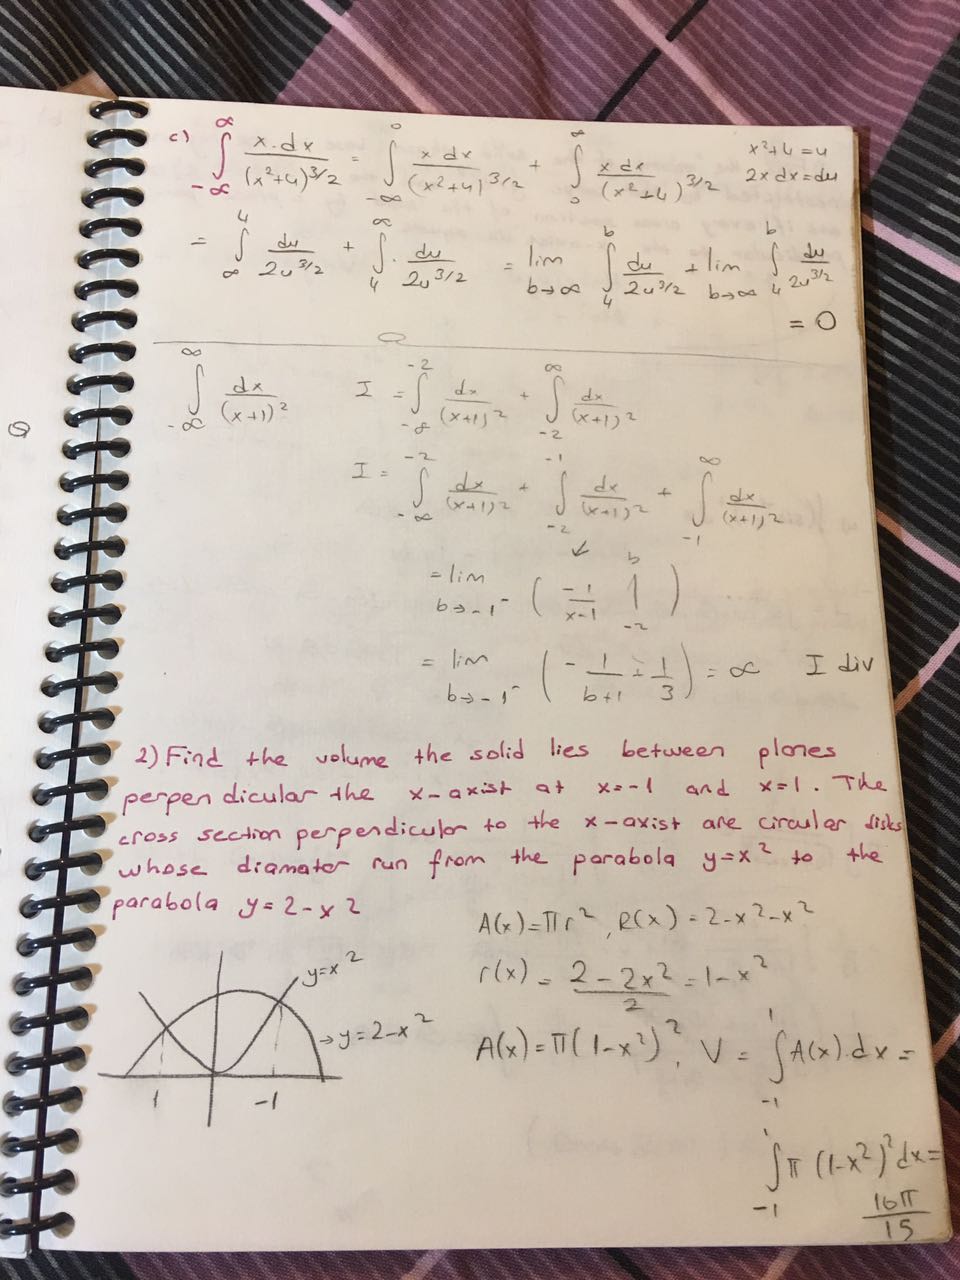 c) ∫_{-∞}^{∞} x·dx/(x²+4)^{3/2} = ∫_{-∞}^{0} x dx/(x²+4)^{3/2} + ∫_{0}^{∞} x dx/(x²+4)^{3/2} x²+4=u
2x dx=du
= ∫_{∞}^{4} du/2u^{3/2} + ∫_{4}^{∞} · du/2u^{3/2} = lim_{b→∞} ∫_{4}^{b} du/2u^{3/2} + lim_{b→∞} ∫_{4}^{b} du/2u^{3/2}
= 0
∫_{-∞}^{∞} dx/(x+1)² I = ∫_{-∞}^{-2} dx/(x+1)² + ∫_{-2}^{∞} dx/(x+1)²
I = ∫_{-∞}^{-2} dx/(x+1)² + ∫_{-2}^{-1} dx/(x+1)² + ∫_{-1}^{∞} dx/(x+1)²
↙
= lim_{b→-1⁻} ( -1/x-1 |_{-2}^{b} )
= lim_{b→-1⁻} ( - 1/b+1 - 1/3 ) = ∞ I div
2) Find the volume the solid lies between planes
perpendicular the x-axist at x=-1 and x=1. The
cross section perpendicular to the x-axist are circular disks
whose diamater run from the parabola y=x² to the
parabola y=2-x²
A(x)=πr², R(x)=2-x²-x²
r(x) = 2-2x²/2 = 1-x²
y=x²
→y=2-x²
A(x)=π(1-x²)², V = ∫_{-1}^{1} A(x).dx =
1 -1
∫_{-1}^{1} π(1-x²)²dx=
16π/15